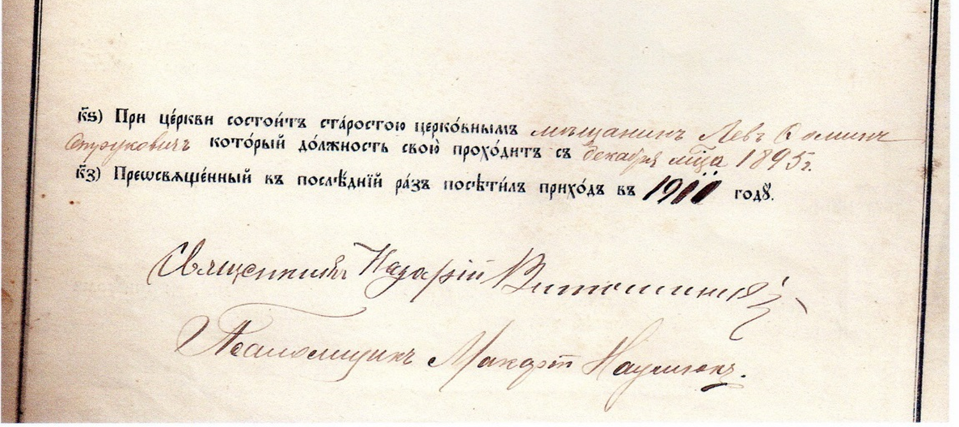 к҃ѕ) При це́ркви состои́тъ ста́ростою церко́внымъ мѣщанинъ Левъ Фоминъ
Струковичъ кото́рый до́лжность свою̀ прохо́дитъ съ декабря мѣсяца 1895 г.
к҃з) Преѡсвѧще́нный въ послѣ́днїй ра́зъ посѣти́лъ прихо́дъ въ 1900 годꙋ̀.
Священникъ Назарій
Псаломщикъ Макарій Наумюкъ.